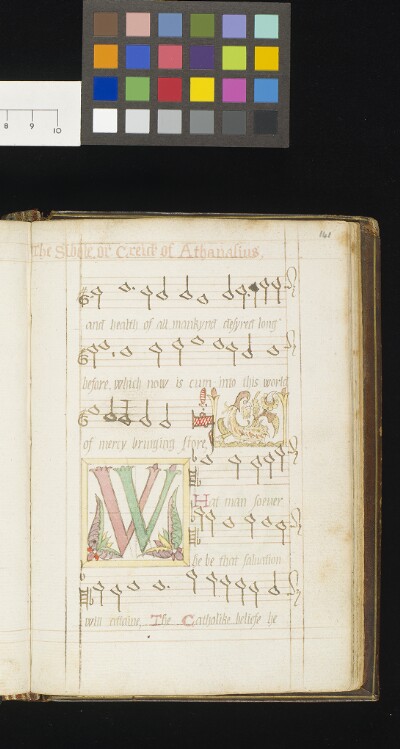 8 9 10
141
The Simbole, or Creede of Athanasius.
and health of all mankynd desyred long
before, which now is cum into this world
of mercy bringing store.
W
Hat man soever
he be that salvation
will attaine, The Catholike beliefe he